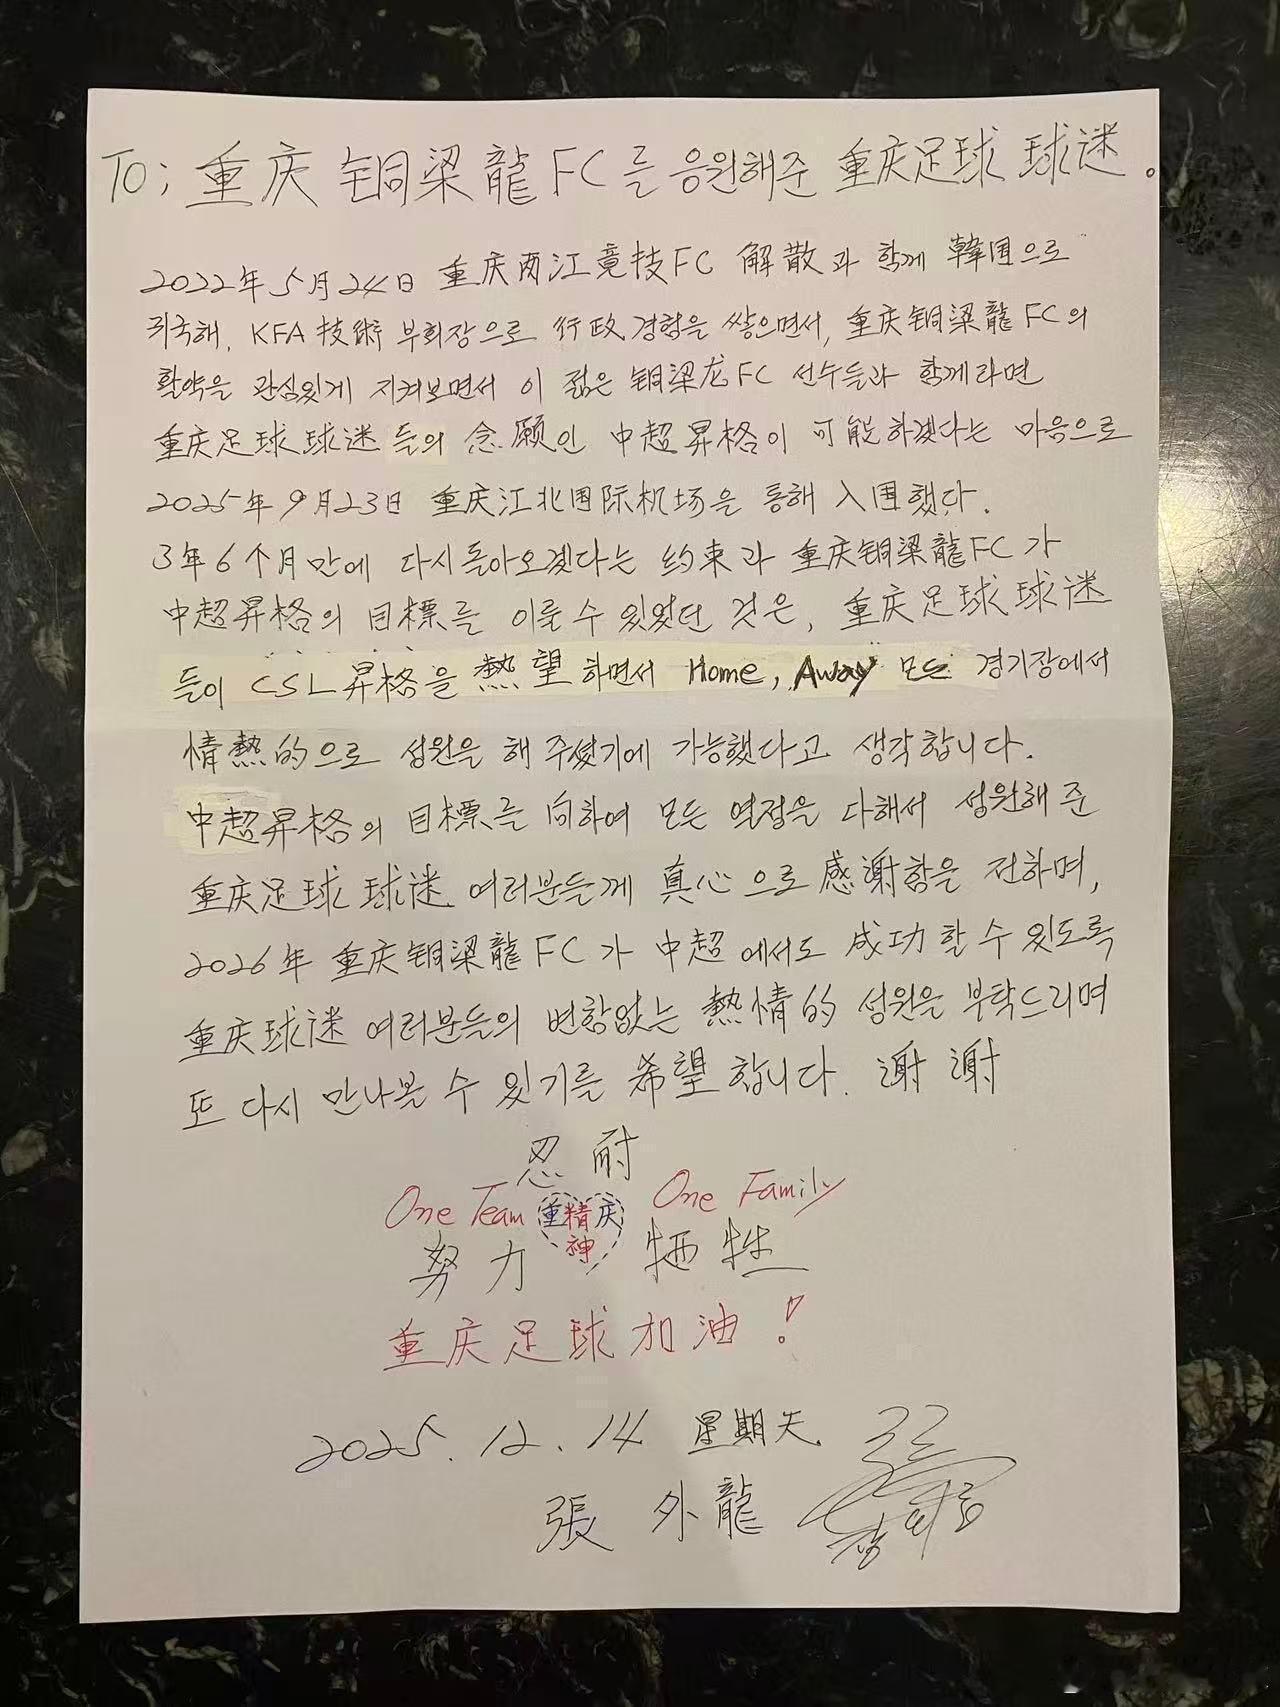 To; 重庆 铜梁龍FC를 응원해준 重庆足球 球迷。
2022年 5月 24日 重庆两江竞技FC 解散과 함께 韓国으로
귀국해, KFA 技術 부회장으로 行政 경험을 쌓으면서, 重庆铜梁龍FC의
활약을 관심있게 지켜보면서 이 젊은 铜梁龙FC 선수들과 함께라면
重庆足球球迷들의 念願인 中超昇格이 可能하겠다는 마음으로
2025年 9月23日 重庆江北国际机场을 통해 入国했다.
3年6个月만에 다시돌아오겠다는 约束과 重庆铜梁龍FC가
中超昇格의 目標를 이룰수 있었던 것은, 重庆足球球迷
들이 CSL昇格을 熱望하면서 Home, Away 모든 경기장에서
情熱的으로 성원을 해 주셨기에 가능했다고 생각합니다.
中超昇格의 目標를 向하여 모든 열정을 다해서 성원해 준
重庆足球 球迷 여러분들께 真心으로 感谢함을 전하며,
2026年 重庆铜梁龍FC가 中超에서도 成功할 수 있도록
重庆球迷 여러분들의 변함없는 熱情的 성원을 부탁드리며
또 다시 만나볼 수 있기를 希望합니다. 谢谢
忍耐
One Team 重精庆 One Family
神
努力 牺牲
重庆足球加油!
2025. 12. 14 星期天
張 外龍